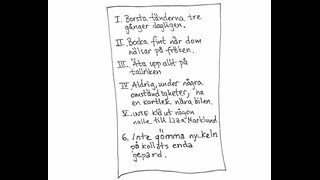 I. Borsta tänderna tre
gånger dagligen.
II. Bocka fint när dom
hälsar på fröken.
III. Äta upp allt på
tallriken
IV Aldrig, under några
omständigheter, ha
en kortlek nära bilen.
V. INTE klä ut någon
nalle till Liza Marklund.
6. Inte gömma nyckeln
på kollots enda
gepard.